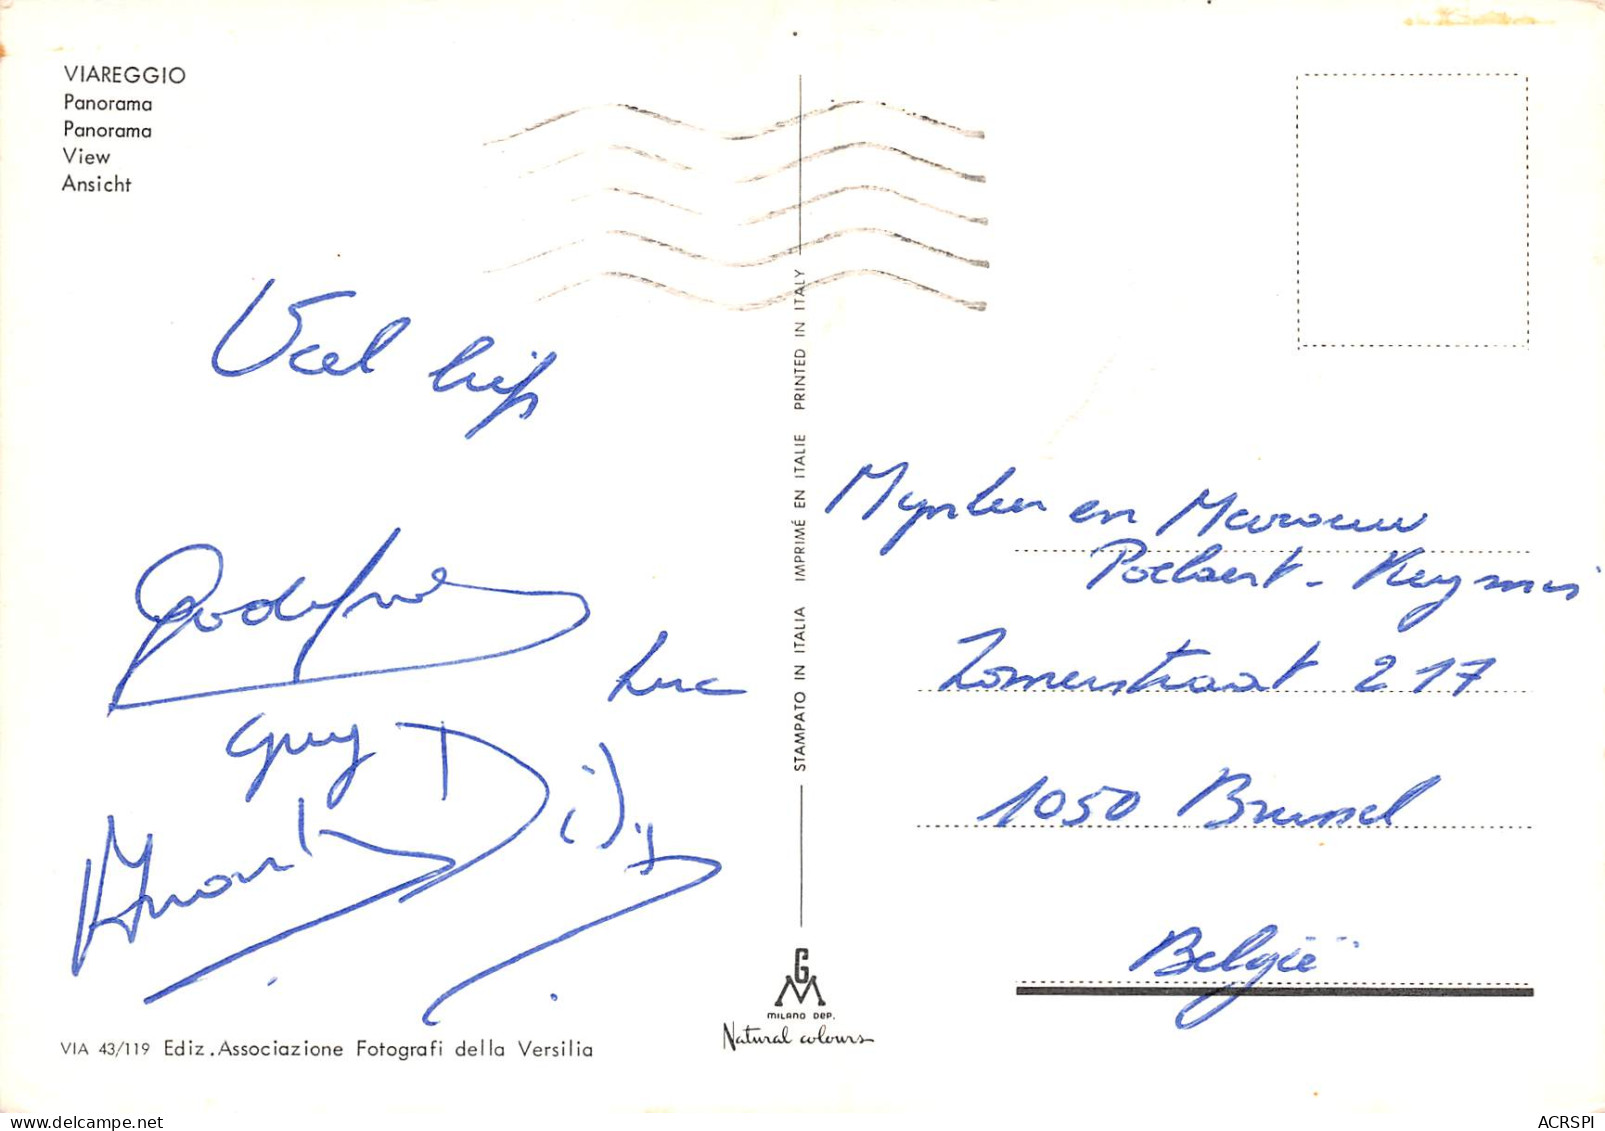 VIAREGGIO
Panorama
Panorama
View
Ansicht
Veel liefs
Godefroid
Luc
Guy
Didy
STAMPATO IN ITALIA IMPRIMÉ EN ITALIE PRINTED IN ITALY
Mynheer en Mevrouw
Poelaert - Keymis
Zomerstraat 217
1050 Brussel
België
GM
MILANO DEP.
Natural colours
VIA 43/119 Ediz. Associazione Fotografi della Versilia
ACRSPI